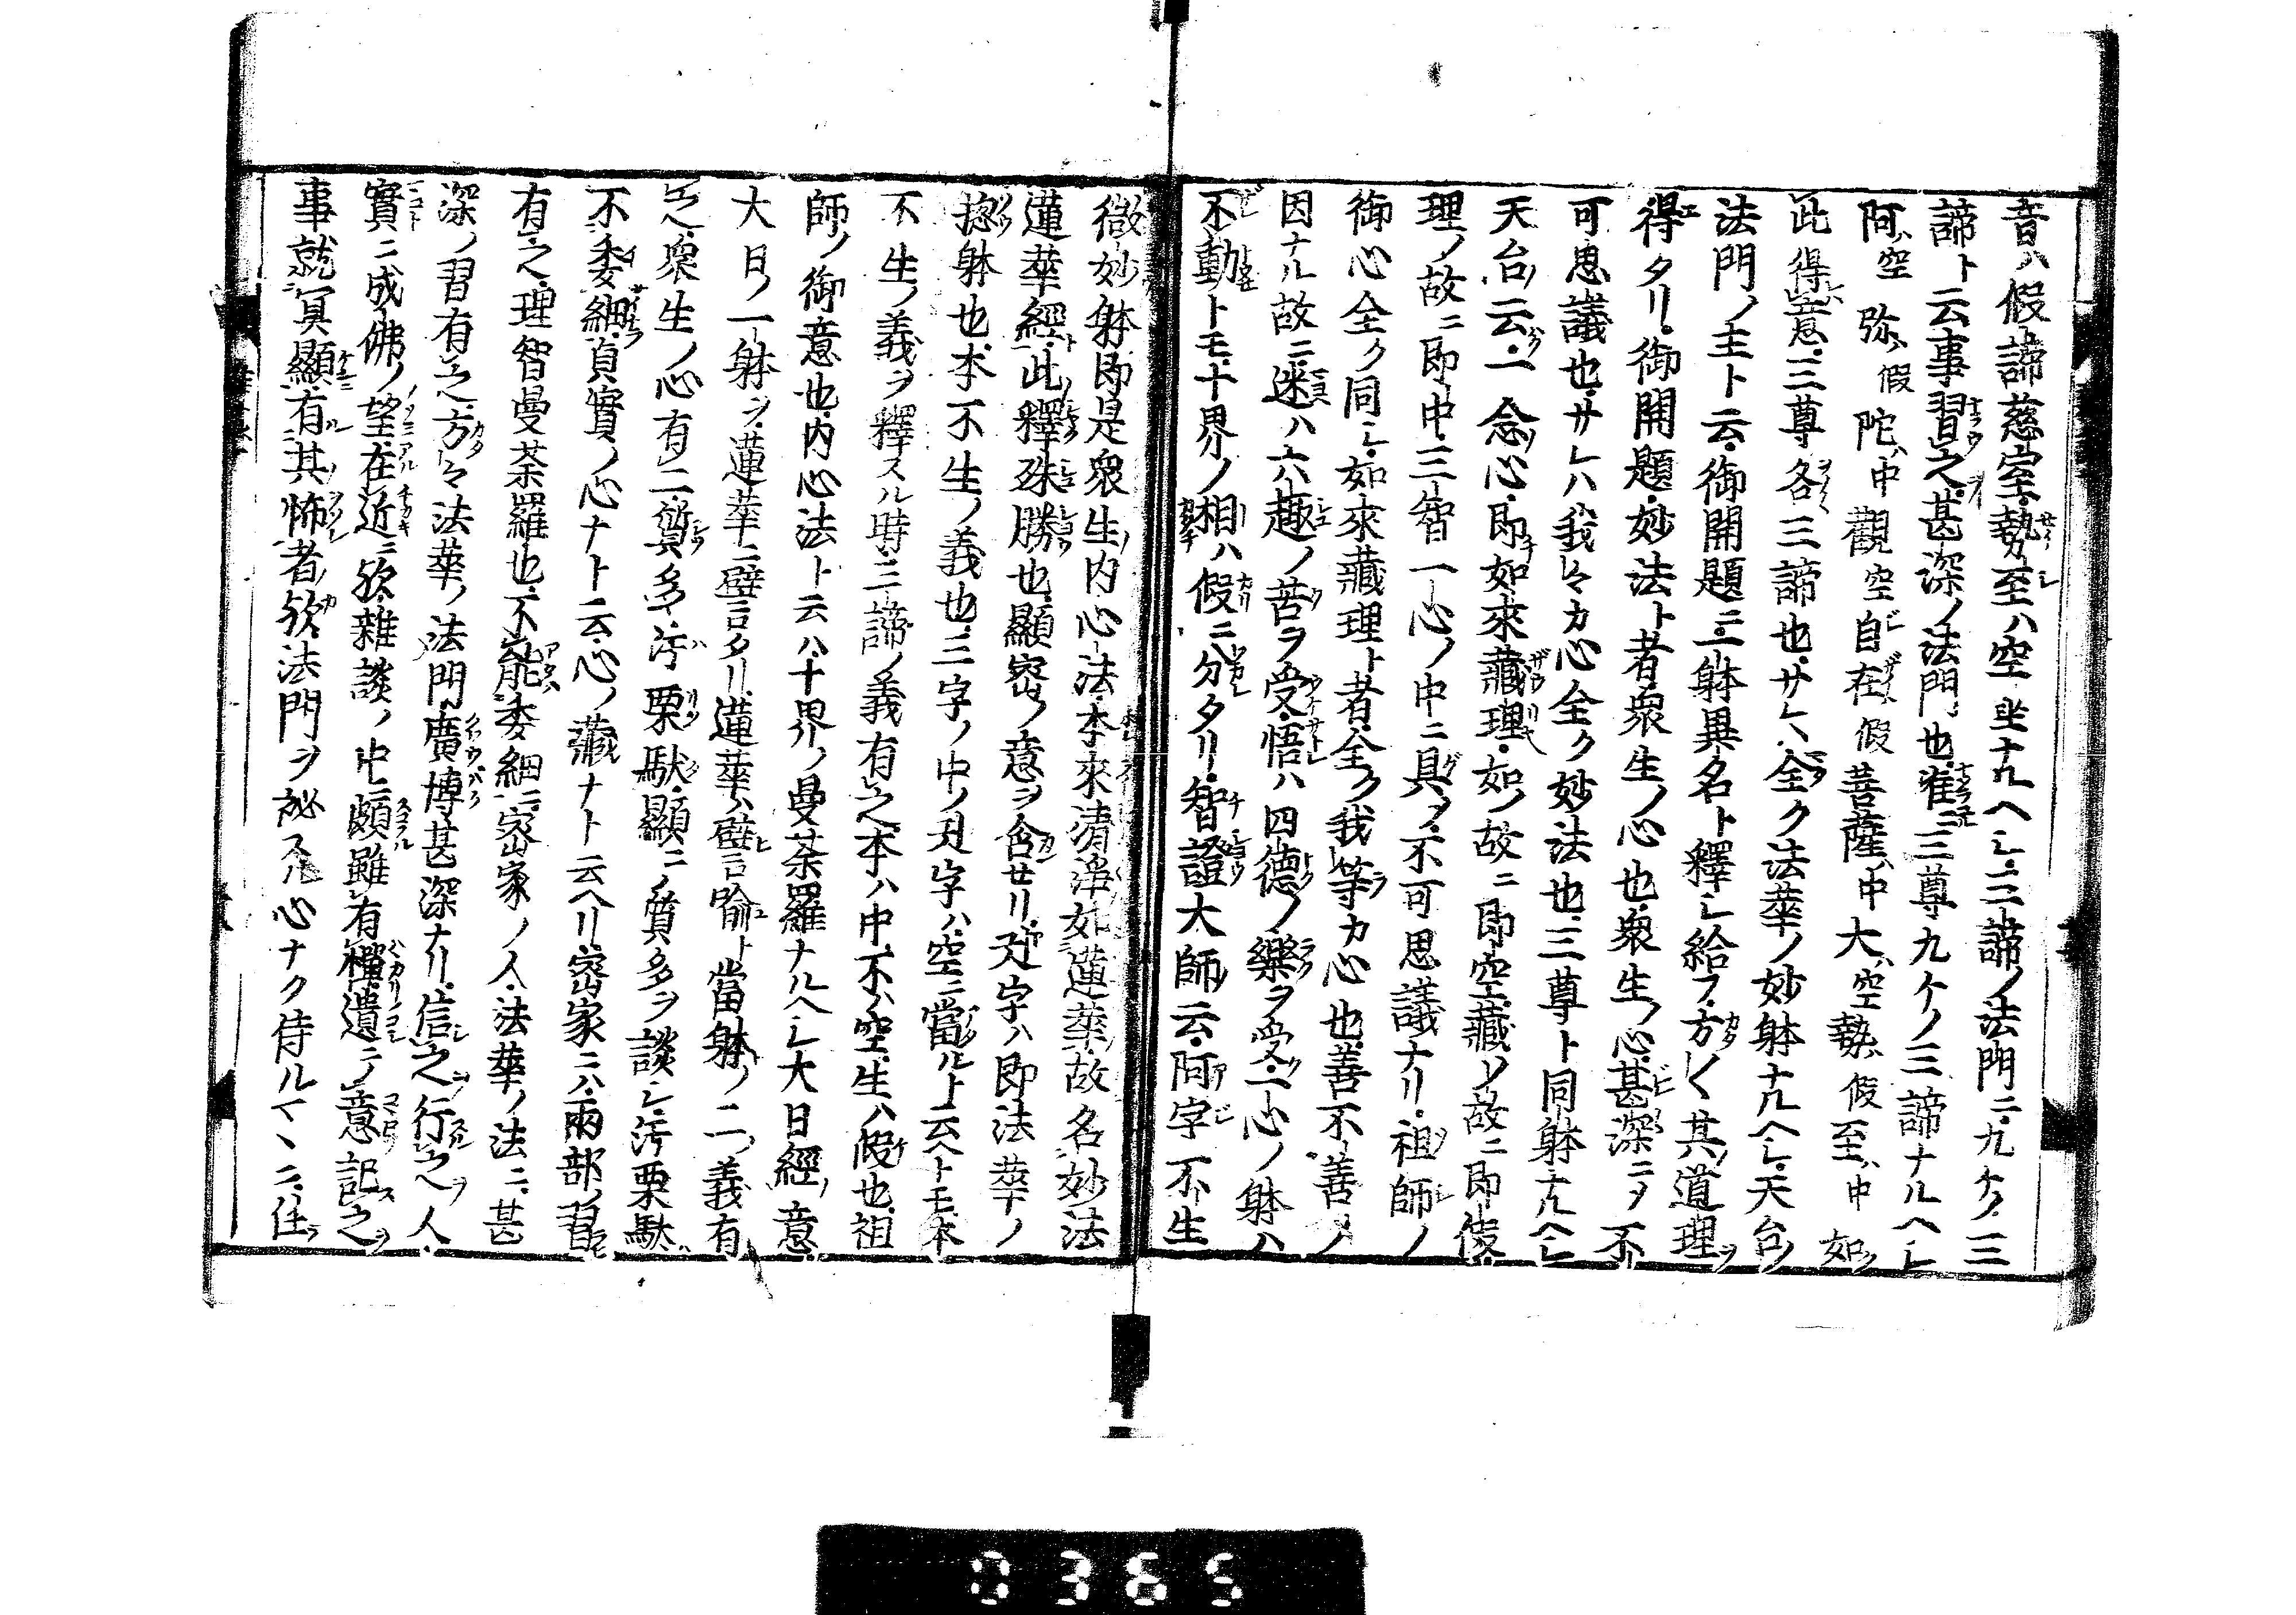 音ハ假諦慈定勢至ハ空坐ナルヘシ三諦ノ法門ニ九ケノ三
諦ト云事習之甚深ノ法門也准三尊九ケノ三諦ナルヘシ
阿ハ空弥ハ假陀ハ中觀空自在假菩薩ハ中大ハ空勢ハ假至ハ中如
此得意三尊各三諦也サレハ全ク法華ノ妙躰ナルヘシ天台ノ
法門ノ主ト云御開題ニ一躰異名ト釋シ給フ方〱其道理ヲ
得タリ御開題妙法ト者衆生ノ心也衆生ノ心甚深ニメ不
可思議也サレハ我レカ心全ク妙法也三尊ト同躰ナルヘシ
天台云一念心即如來藏理如ノ故ニ即空藏ノ故ニ即假
理ノ故ニ即中三智一心ノ中ニ具メ不可思議ナリ祖師ノ
御心全ク同シ如來藏理ト者全ク我等カ心也善不善ノ
因ナル故ニ迷ハ六趣ノ苦ヲ受悟ハ四德ノ樂ヲ受一心ノ躰ハ
不動トモ十界ノ相ハ假ニ分タリ智證大師云阿字不生
微妙躰即是衆生内心法本來清淨如蓮華故名妙法
蓮華經此釋殊勝也顯密ノ意ヲ含セリ字ハ即法華ノ
捴躰也本不生ノ義也三字ノ中ノ字ハ空ニ當ルト云ヘトモ本
不生ノ義ヲ釋スル時三諦ノ義有之本ハ中不ハ空生ハ假也祖
師ノ御意也内心法ト云ハ十界ノ曼荼羅ナルヘシ大日經意
大日ノ一躰ヲ蓮華ニ譬タリ蓮華ハ譬喩ト當躰ノ二ノ義有
之衆生ノ心有二質多汚栗駄顯ニノ質多ヲ談シ汚栗駄
不委細眞實ノ心ナト云心ノ藏ナト云ヘリ密家ニハ兩部習
有之理智曼荼羅也不能委細ニ密家ノ人法華ノ法ニ甚
深ノ習有之方々法華ノ法門廣博甚深ナリ信之行之人
實ニ成佛ノ望在近ニ欤雜談ノ中ニ頗雖有憚遺ニノ意記之
事就冥顯有其怖者欤法門ヲ祕スル心ナク侍ルマヽニ任
0365